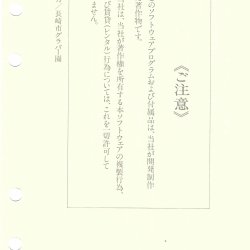 《ご注意》
のソフトウェアプログラムおよび付属品は、当社が開発制作
著作物です。
当社は、当社が著作権を所有する本ソフトウェアの複製行為、
び賃貸(レンタル)行為については、これを一切許可して
ません。
長崎オランダ